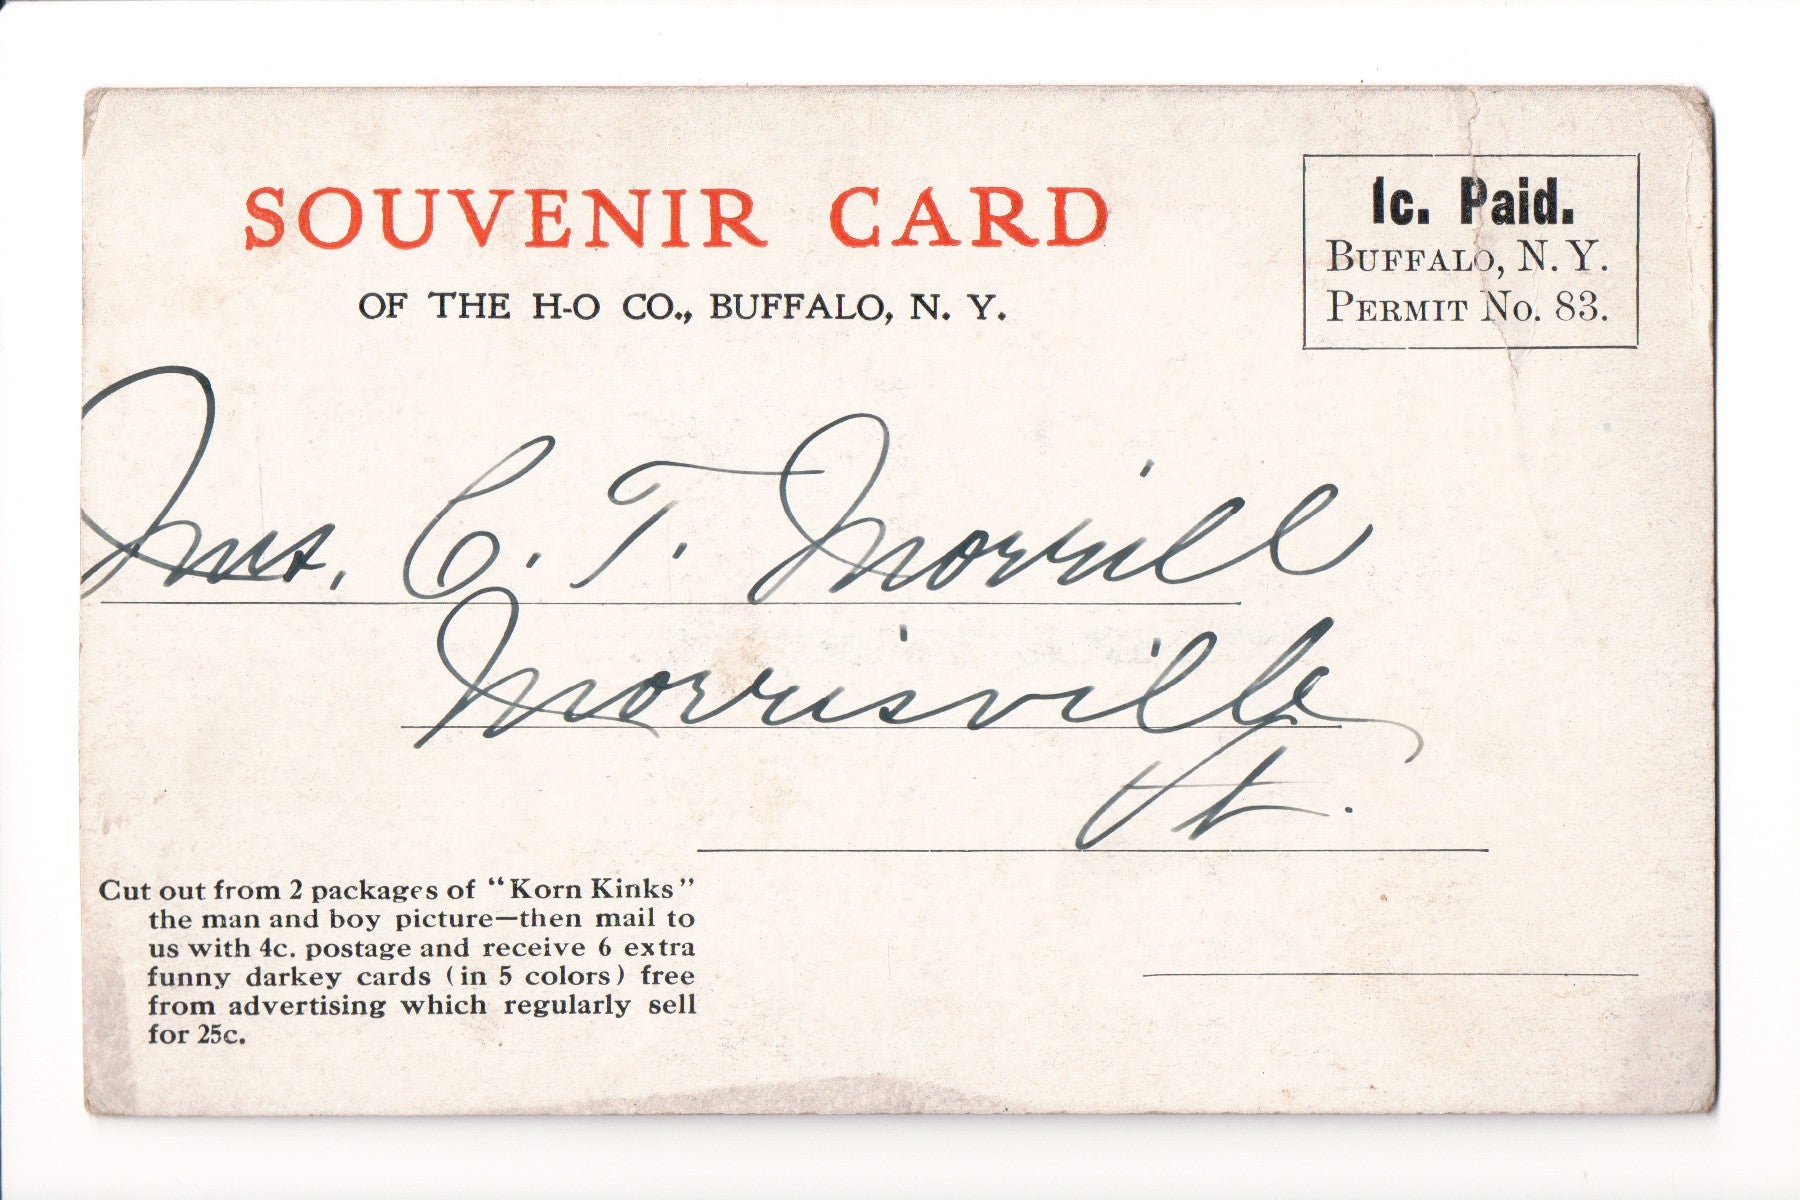 SOUVENIR CARD
OF THE H-O CO., BUFFALO, N. Y.
1c. Paid.
BUFFALO, N. Y.
PERMIT No. 83.
Mrs. C. T. Morrill
Morrisville
Vt.
Cut out from 2 packages of “Korn Kinks”
the man and boy picture—then mail to
us with 4c. postage and receive 6 extra
funny darkey cards (in 5 colors) free
from advertising which regularly sell
for 25c.